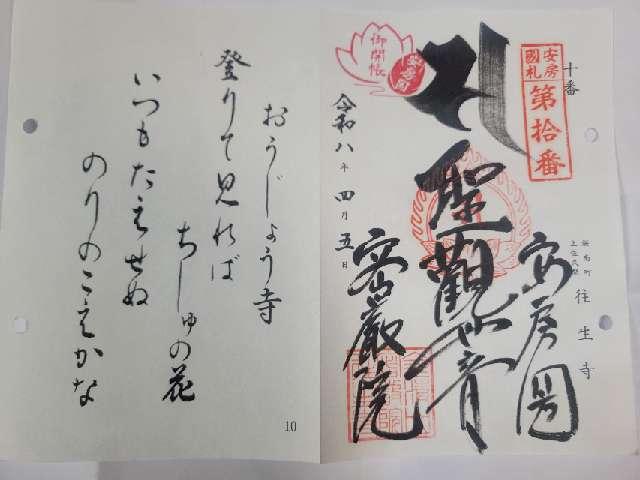 十番
安房
國札
第拾番
往生寺
安房国
聖観世音
密厳院
御開帳
安房国
令和八年四月五日
おうじょう寺
登りて見れば
ちしゅの花
いつもたえせぬ
のりのこゑかな
10